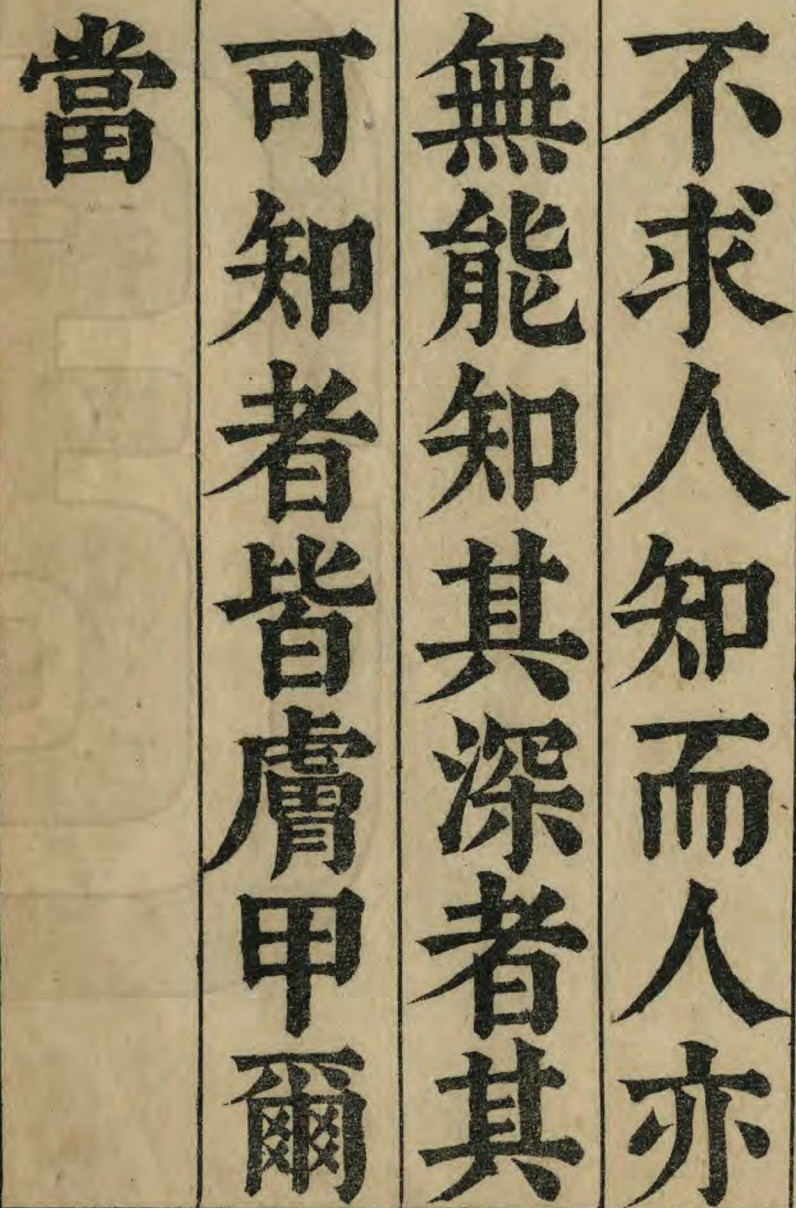 不求人知而人亦
無能知其深者其
可知者皆膚甲爾
當